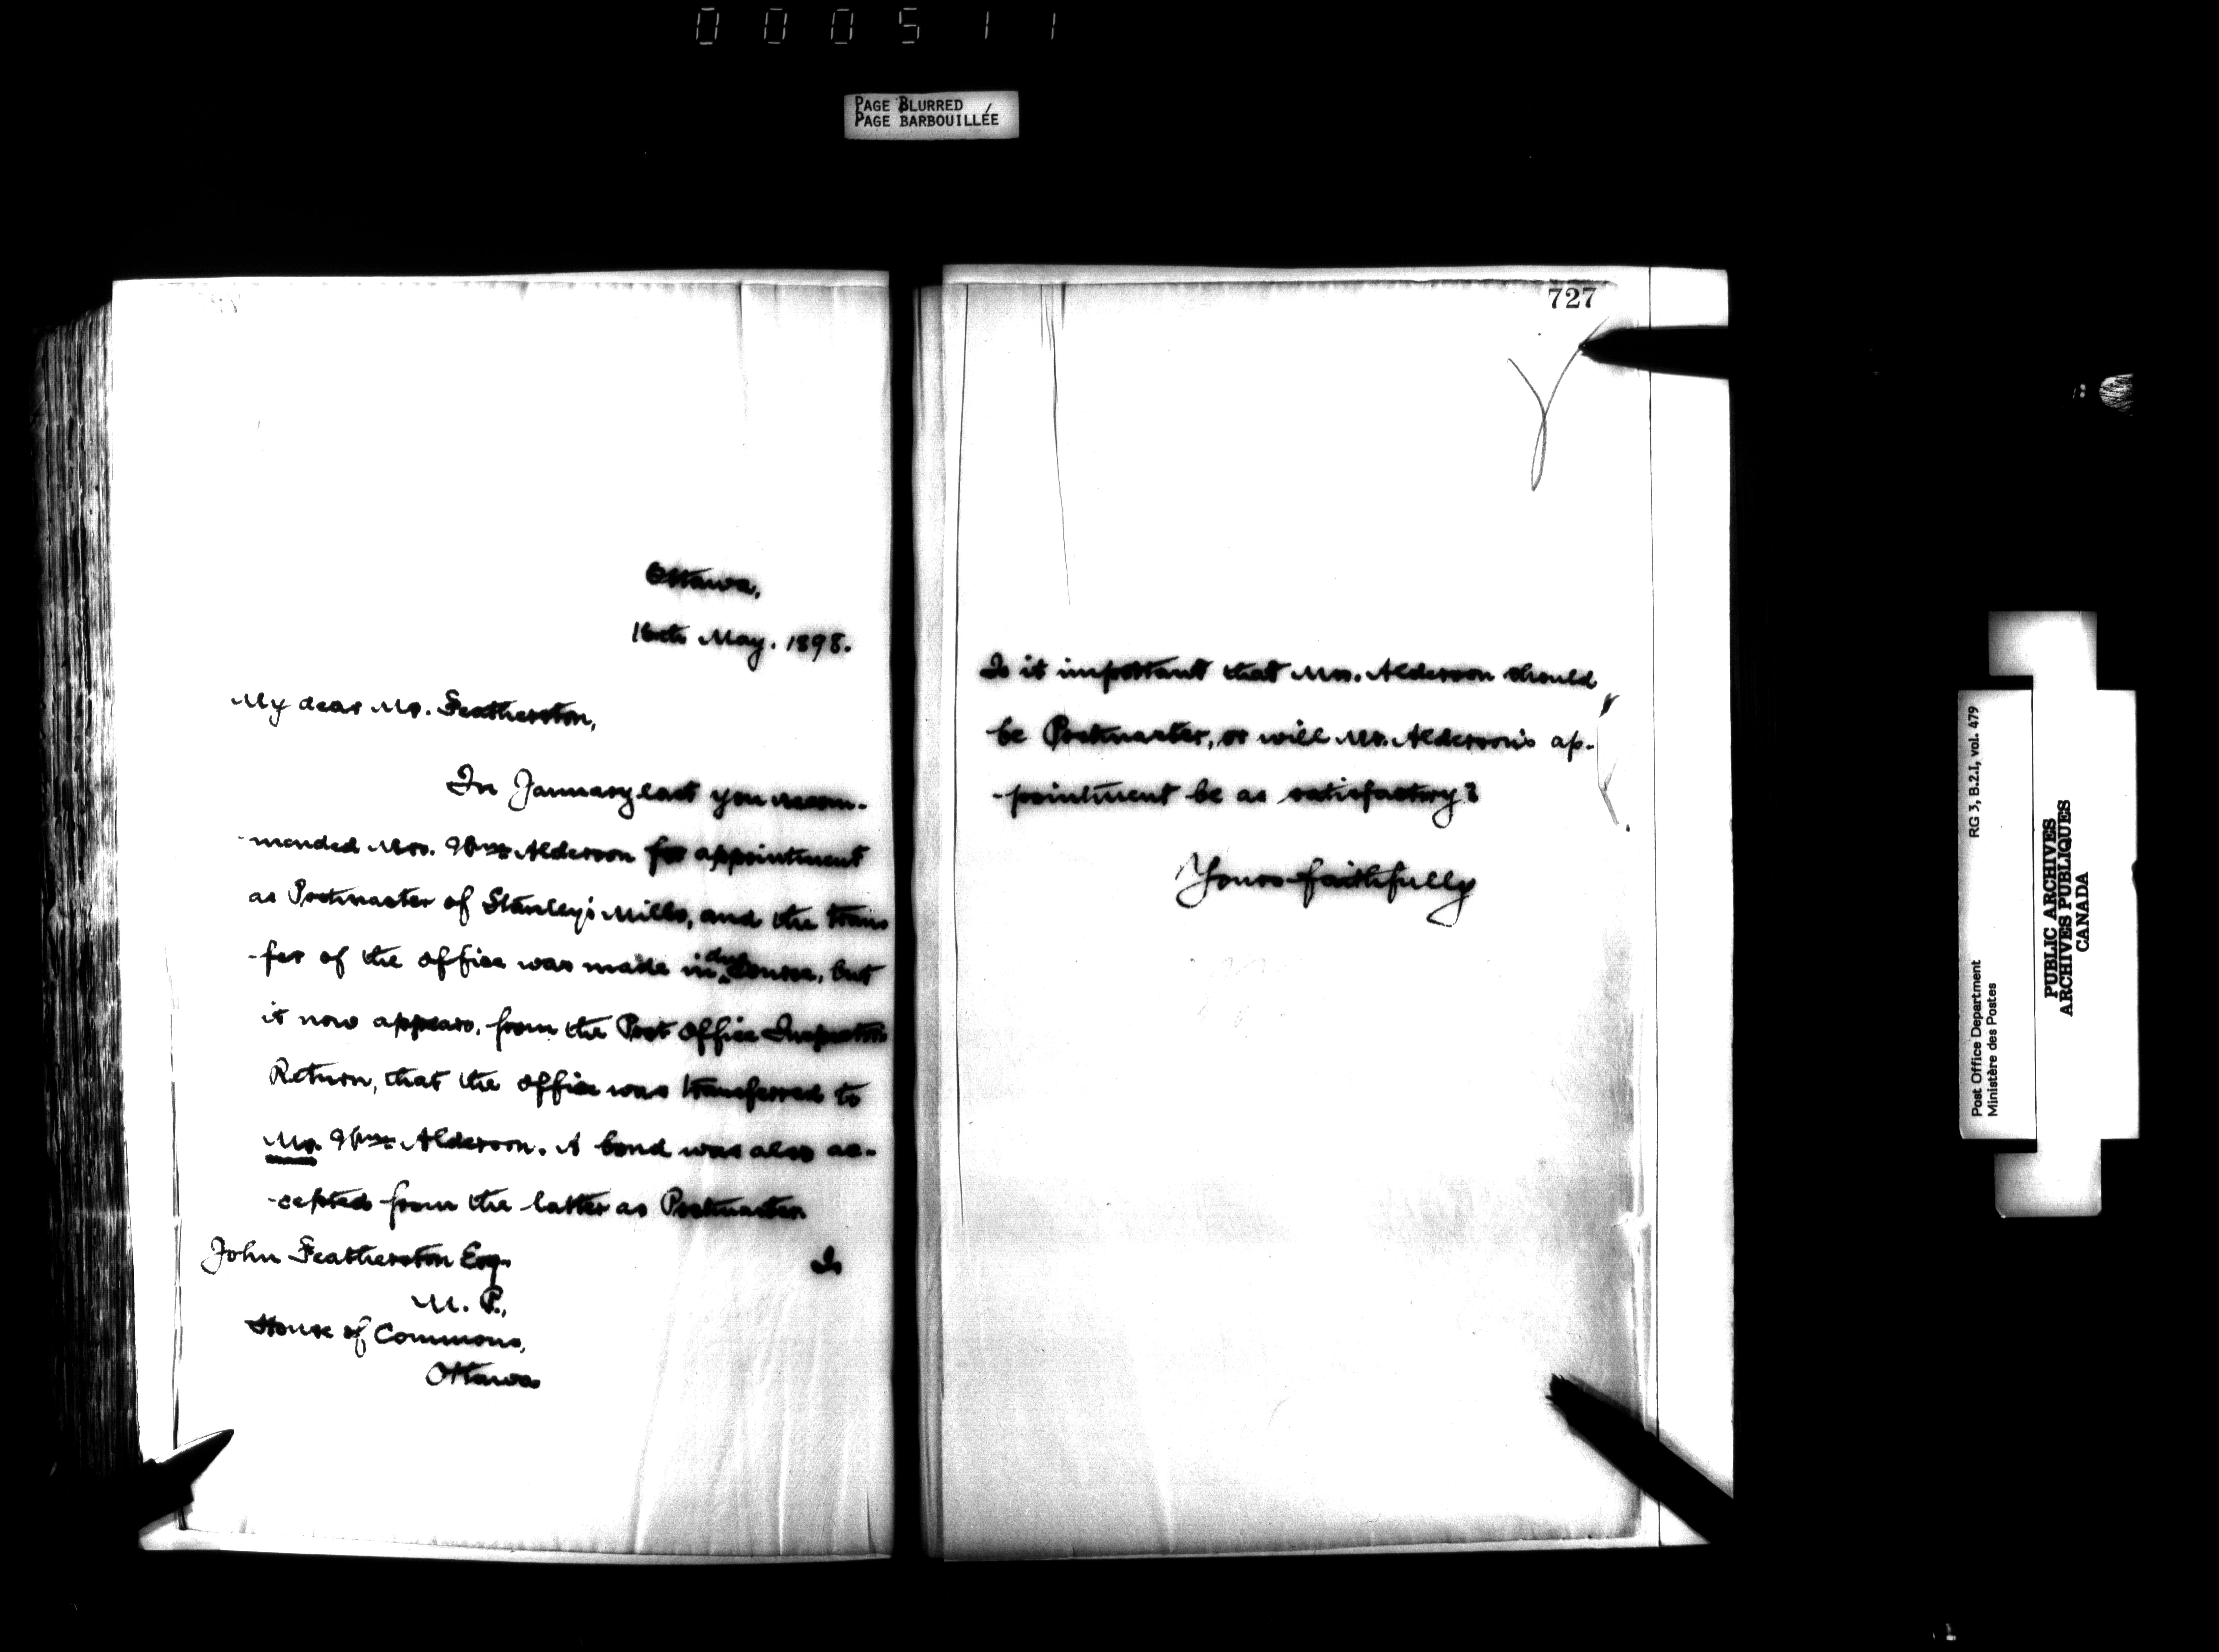 000511
PAGE BLURRED
PAGE BARBOUILLÉE
Ottawa,
16th May. 1898.
My dear Mr. Featherston,
In January last you recom-
-mended Mrs. Wm Alderson for appointment
as Postmaster of Stanley's Mills, and the trans
-fer of the office was made in due course, but
it now appears, from the Post Office Inspector's
Return, that the office was transferred to
Mr. Wm Alderson. A bond was also ac-
-cepted from the latter as Postmaster.
John Featherston Esq.
Is
M. P.,
House of Commons,
Ottawa
727
Is it important that Mrs. Alderson should
be Postmaster, or will Mr. Alderson's ap-
-pointment be as satisfactory?
Yours faithfully
Post Office Department
Ministère des Postes
RG 3, B.2.I, vol. 479
PUBLIC ARCHIVES
ARCHIVES PUBLIQUES
CANADA